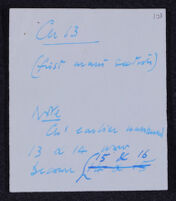 Ch 13
(first main section)
Note
Ch' earlier numbered
13 & 14 now
become (15 & 16